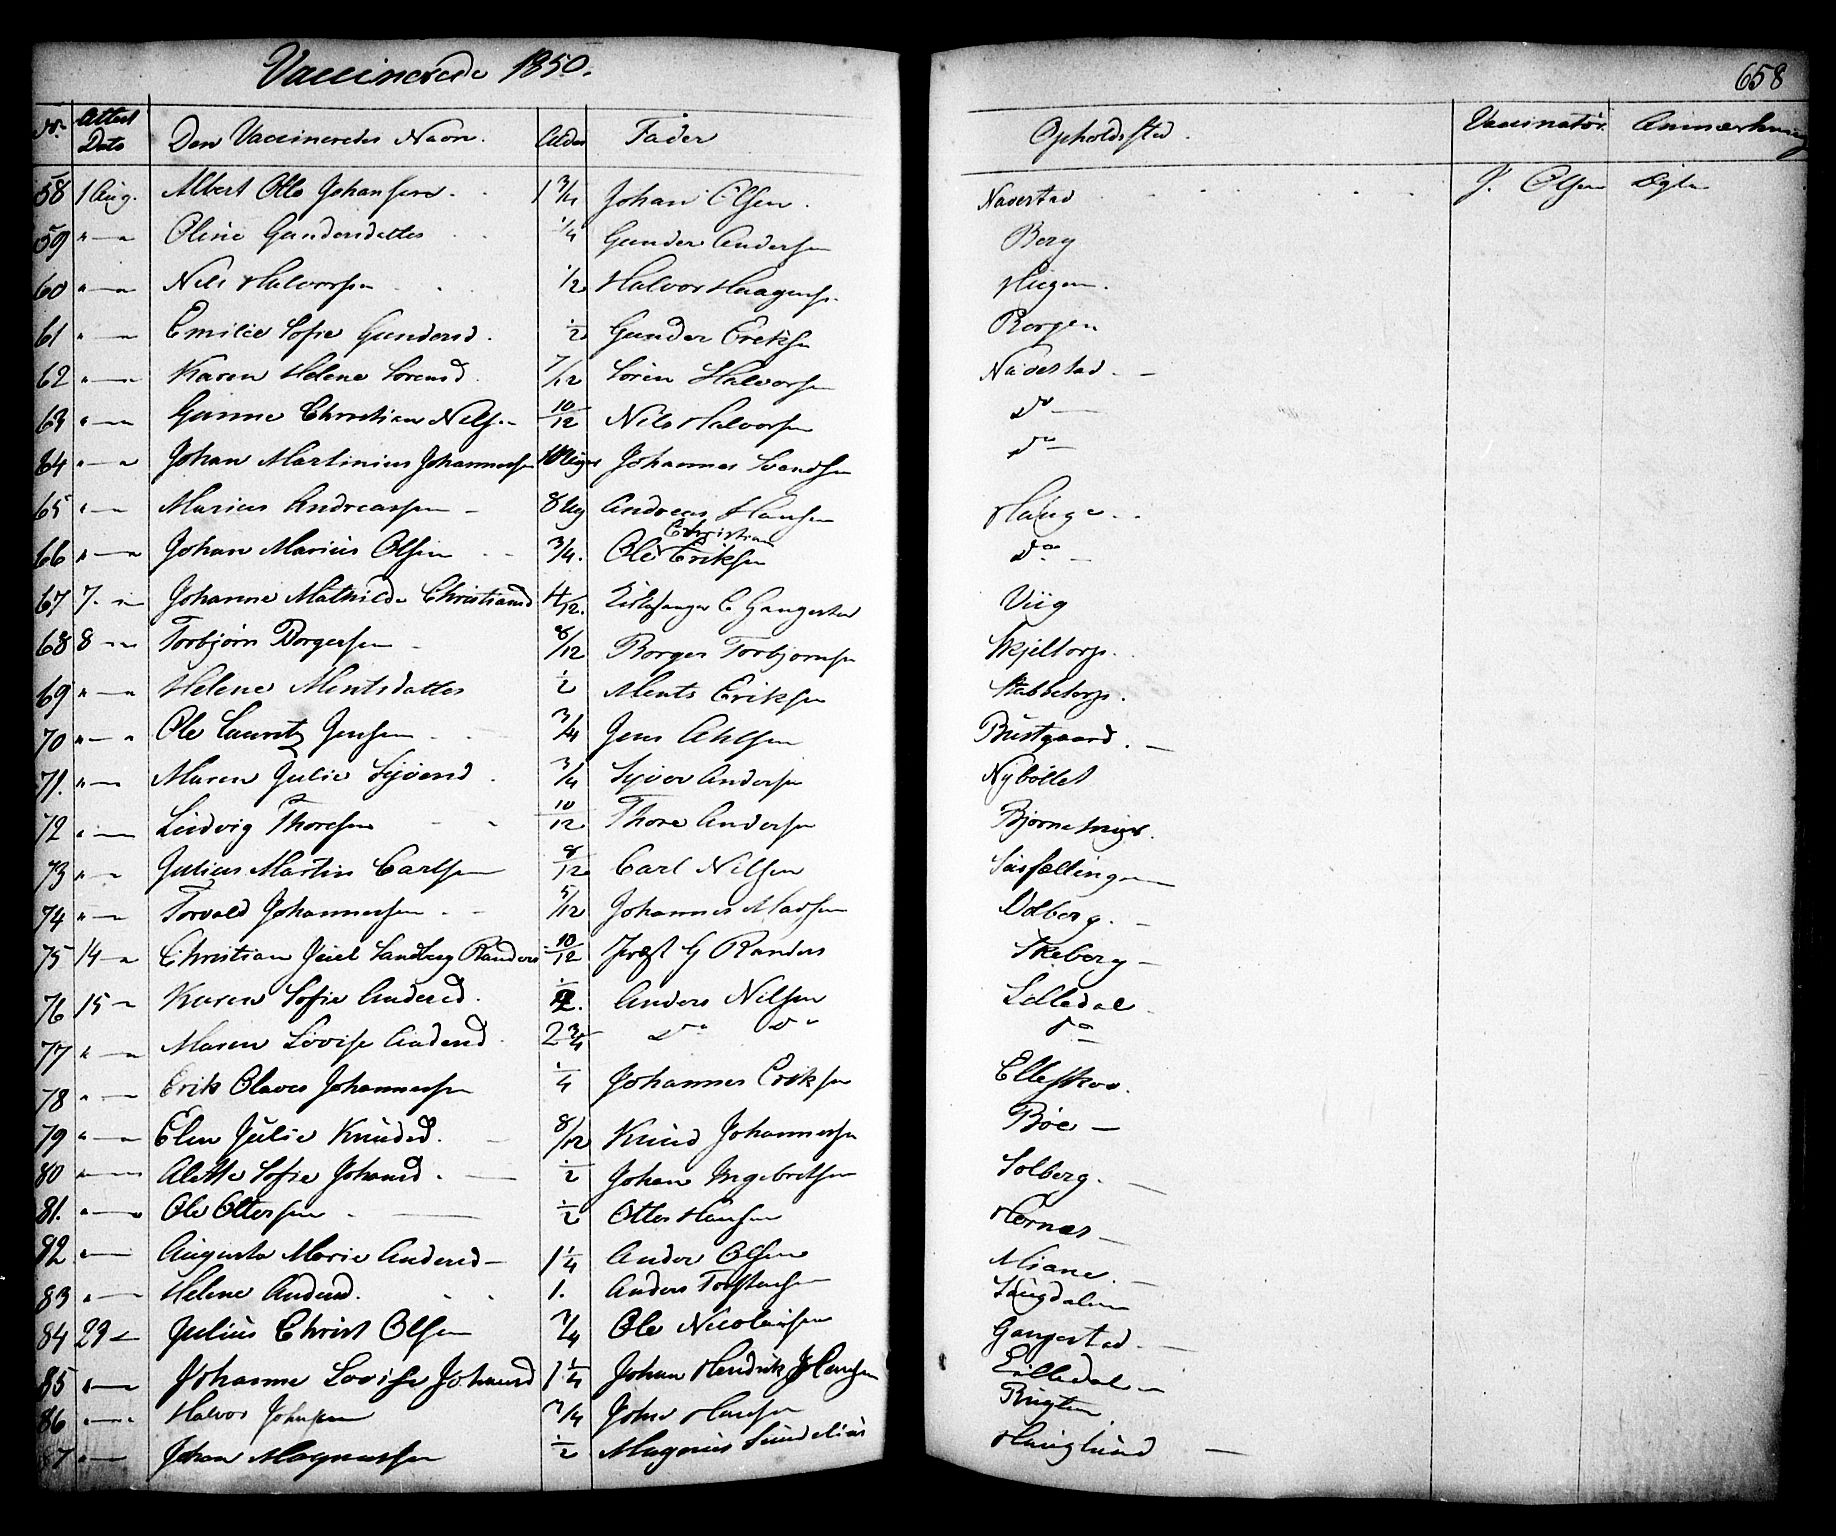 Vaccinerede 1850.
658
No. Attest Dato Den Vaccineredes Navn. Alder Fader Opholdssted. Vaccinatør. Anmærkning
58 1 Aug. Albert Otto Johansen. 1 3/4 Johan Olsen. Navestad J. Olsen Ægte
59 " — " Oline Gundersdatter 1/4 Gunder Andersen Berg
60 " — " Nils Halvorsen 1/2 Halvor Haagens. Haugen.
61 " — Emilie Sofie Gundersd. 1/2 Gunder Eriksen Borgen
62 " — Karen Helene Sørensd. 7/12 Søren Halvorsen Navestad. —
63 " — " Christian Nilsen 10/12 Nils Halvorsen Do —
64 " — " Johan Martinius Johannessen Johannes Svendsen Do —
65 " — Marius Andreassen — 8 Ug Andreas Hansen Hauge.
66 " — " Johan Marius Olsen 3/4. Ole Christian Eriksen Do. —
67 7. — Johanne Mathilde Christiansd 4/12. Kirkesanger C Gangestad Viig
68 8 — Torbjørn Borgersen 8/12 Borger Torbjørnsen Skjeltorp.
69 " — " Helene Mentsdatter 1/2 Ments Eriksen Stabbetorp.
70 " — " Ole Lauritz Jensen 3/4 Jens Ahlsen Bustgaard. —
71. " — Maren Julie Syverd. 3/4 Syver Andersen Nybøllet
72 " — Ludvig Thoresen 10/12 Thore Andersen
73 " — Julius Martin Carlsen 8/12 Carl Nilsen
74 " — Torvald Johannessen 5/12 Johannes Madsen Valberg. —
75 14 — " Christian Juel Sandberg Randers 10/12 Præst G Randers Skeberg —
76 15 — Karen Sofie Andersd. 1/2. Anders Nilsen Lilledal
77 " — " Maren Lovise Andersd 2 3/4 Do Do Do
78 " — Erik Olaves Johannessen 1/4 Johannes Eriksen Elleskov.
79 " — " Elen Julie Knudsd. 8/12 Knud Johannessen Bøe —
80 " — Alette Sofie Johansd. — 1/2 Johan Ingebretsen Solberg. —
81. " — Ole Ottersen — 1/2 Otter Hansen Hornæs —
82 " — Augusta Marie Andersd — 1 1/4 Anders Olsen —
83 " — Helene Andersd. 1. Anders Torstensen Haugdalen
84 29 — Julius Christ Olsen 3/4 Ole Nicolaisen Gangestad. —
85 " — Johanne Lovise Johansd 1 1/4 Johan Hendrik Hansen Lilledal —
86 " — Halvor Johnsen 3/4 John Hansen
87 " — Johan Magnussen 1/2 Magnus Sundelius Hauglund —